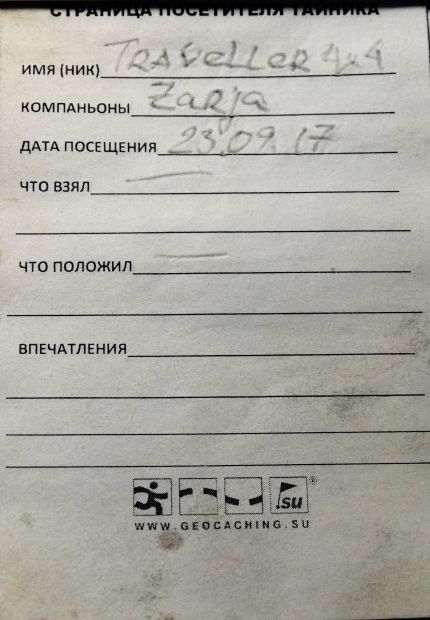 СТРАНИЦА ПОСЕТИТЕЛЯ ТАЙНИКА
ИМЯ (НИК) TRAVELLER 4x4
КОМПАНЬОНЫ Zarja
ДАТА ПОСЕЩЕНИЯ 23.09.17
ЧТО ВЗЯЛ —
ЧТО ПОЛОЖИЛ —
ВПЕЧАТЛЕНИЯ
.su ®
WWW.GEOCACHING.SU